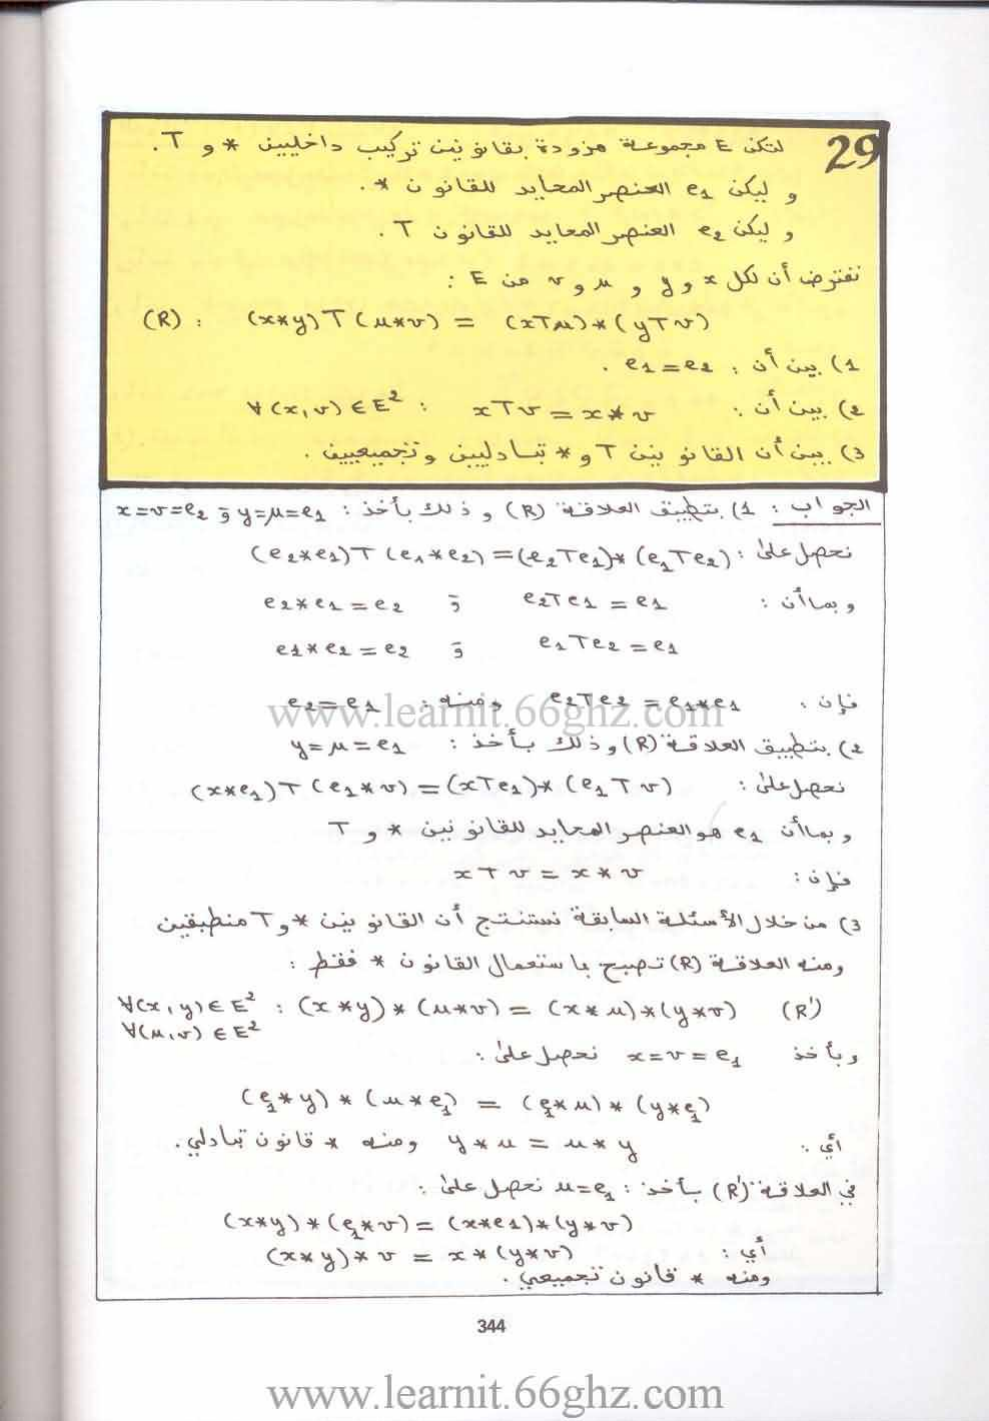 29 لتكن E مجموعة مزودة بقانونين تركيب داخليين * و T.
و ليكن e₁ العنصر المحايد للقانون *.
و ليكن e₂ العنصر المحايد للقانون T.
نفترض أن لكل x و y و u و v من E :
(R) : (x*y)T(u*v) = (xTu)*(yTv)
1) بين أن : e₁=e₂ .
2) بين أن : ∀(x,v)∈E² : xTv = x*v
3) بين أن القانونين T و * تبادليين وتجميعيين .
الجواب : 1) بتطبيق العلاقة (R) و ذلك بأخذ : y=u=e₁ وَ x=v=e₂
نحصل على : (e₂*e₁)T(e₁*e₂)=(e₂Te₁)*(e₁Te₂)
وبما أن : e₂Te₁ = e₁ وَ e₂*e₁ = e₂
e₁Te₂ = e₁ وَ e₁*e₂ = e₂
فإن : e₂Te₂ = e₁*e₁ ومنه : e₂=e₁
2) بتطبيق العلاقة (R) وذلك بأخذ : y=u=e₁
نحصل على : (x*e₁)T(e₁*v)=(xTe₁)*(e₁Tv)
و بما أن e₁ هو العنصر المحايد للقانونين * و T
فإن : xTv = x*v
3) من خلال الأسئلة السابقة نستنتج أن القانونين * و T منطبقين
ومنه العلاقة (R) تصبح باستعمال القانون * فقط :
(R') ∀(x,y)∈E² : (x*y)*(u*v) = (x*u)*(y*v)
∀(u,v)∈E²
وبأخذ x=v=e₁ نحصل على :
(e₁*y)*(u*e₁) = (e₁*u)*(y*e₁)
أي : y*u = u*y ومنه * قانون تبادلي.
في العلاقة (R') بأخذ : u=e₁ نحصل على :
(x*y)*(e₁*v)=(x*e₁)*(y*v)
أي : (x*y)*v = x*(y*v)
ومنه * قانون تجميعي .
344
www.learnit.66ghz.com
www.learnit.66ghz.com